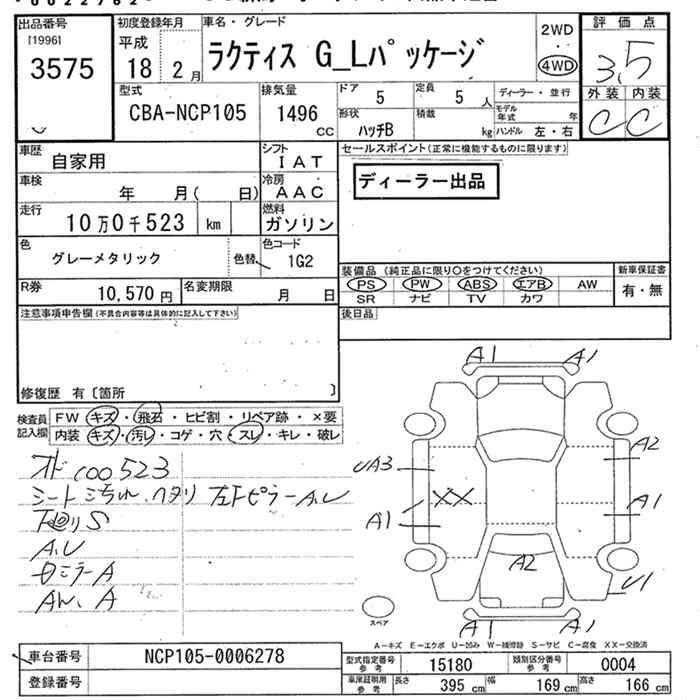 出品番号
[1996]
3575
初度登録年月
平成
18 2月
車名・グレード
ラクティス G_Lパッケージ
2WD
・
4WD
評価点
3.5
外装 内装
C C
型式
CBA-NCP105
排気量
1496
cc
ドア
5
定員
5 人
形状
ハッチB
積載
kg
ディーラー・並行
モデル
年式
年
ハンドル 左・右
車歴
自家用
シフト
IAT
車検
年 月( 日)
冷房
AAC
走行
10万0千523 km
燃料
ガソリン
色
グレーメタリック
色替
色コード
1G2
R券
10,570円
名変期限
月 日
セールスポイント(正常に機能するものに限ります)
ディーラー出品
装備品(純正品に限り○をつけてください)
PS PW ABS エアB AW
SR ナビ TV カワ
新車保証書
有・無
注意事項申告欄(不具合内容等は具体的に記入して下さい)
修復歴 有〔箇所 〕
後日品
検査員
記入欄
FW キズ・飛石・ヒビ割・リペア跡・×要
内装 キズ・汚レ・コゲ・穴・スレ・キレ・破レ
シート 左Fピラー A.U
下廻りS
A.U
ミラーA
A1 A1
UA3
A2
XX
A1
A1
A2
U1
A1 A1
スペア
A-キズ E-エクボ U-凹み W-補修跡 S-サビ C-腐食 XX-交換済
車台番号
NCP105-0006278
登録番号
型式指定番号
参考
15180
類別区分番号
参考
0004
車庫証明用
参考
長さ
395 cm
幅
169 cm
高さ
166 cm